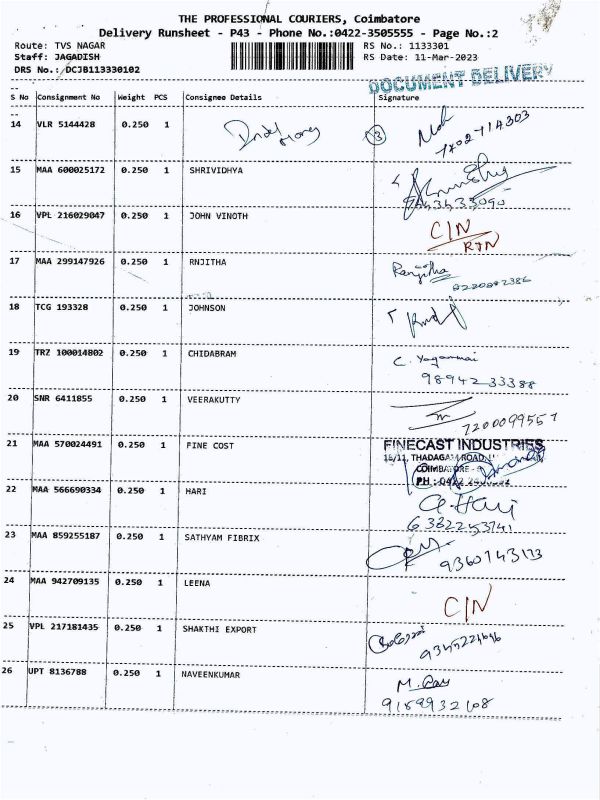 THE PROFESSIONAL COURIERS, Coimbatore
Delivery Runsheet - P43 - Phone No.:0422-3505555 - Page No.:2
Route: TVS NAGAR RS No.: 1133301
Staff: JAGADISH RS Date: 11-Mar-2023
DRS No.: DCJB113330102
DOCUMENT DELIVERY
S No Consignment No Weight PCS Consignee Details Signature
14 VLR 5144428 0.250 1 3 7402714303
15 MAA 600025172 0.250 1 SHRIVIDHYA
16 VPL 216029047 0.250 1 JOHN VINOTH C/N
RTN
17 MAA 299147926 0.250 1 RNJITHA Ranjitha
18 TCG 193328 0.250 1 JOHNSON
19 TRZ 100014802 0.250 1 CHIDABRAM C. Yogammai
98942 33388
20 SNR 6411855 0.250 1 VEERAKUTTY
7200099557
21 MAA 570024491 0.250 1 FINE COST FINECAST INDUSTRIES
THADAGAM ROAD,
COIMBATORE
PH : 0422
22 MAA 566690334 0.250 1 HARI Hari
23 MAA 859255187 0.250 1 SATHYAM FIBRIX 9360743173
24 MAA 942709135 0.250 1 LEENA C/N
25 VPL 217181435 0.250 1 SHAKTHI EXPORT
26 UPT 8136788 0.250 1 NAVEENKUMAR M.
9189932108